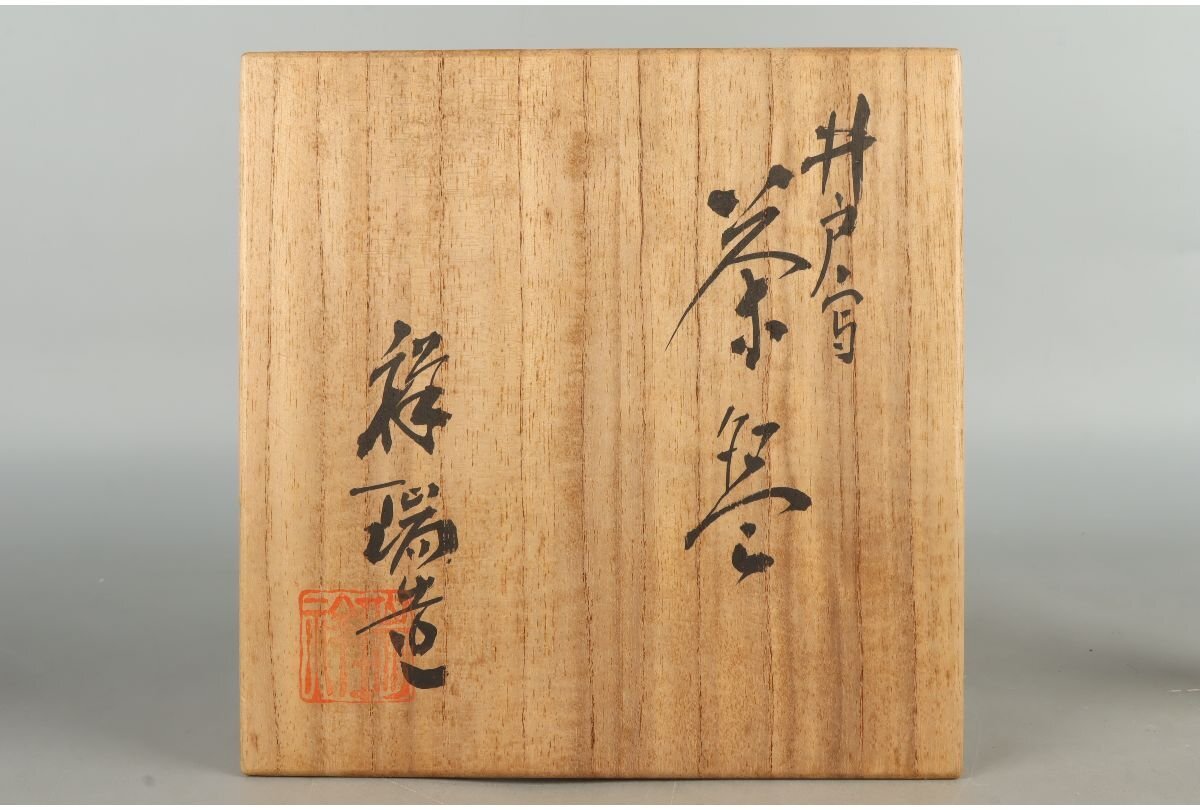 井戸写
茶盌
祥瑞造